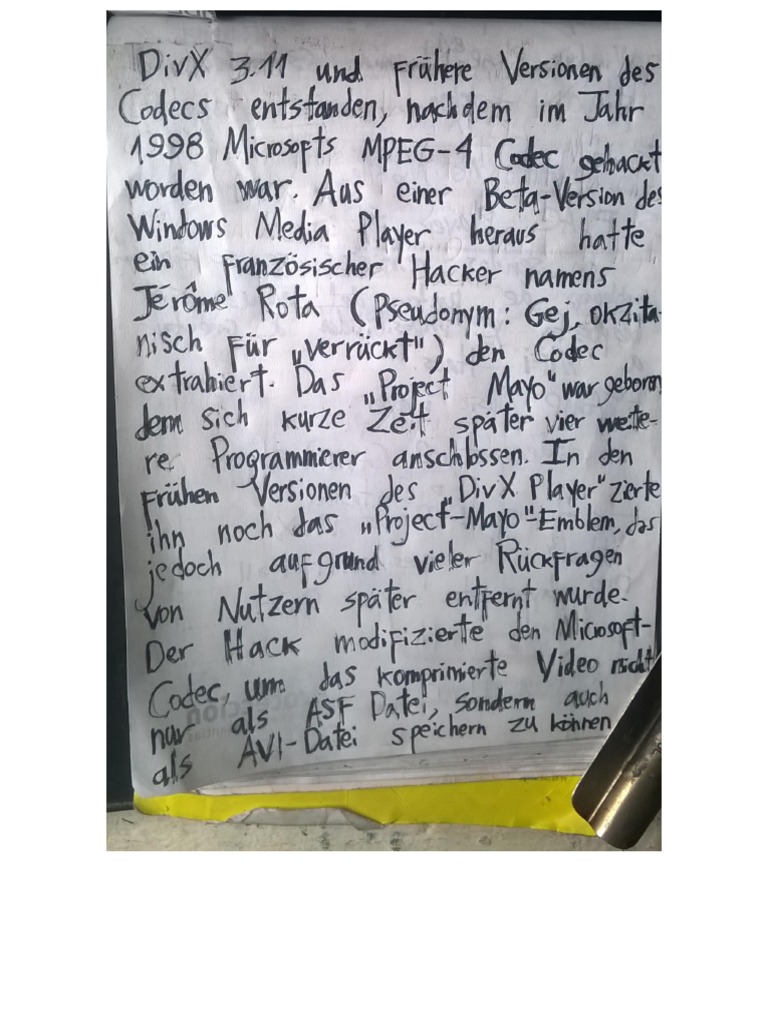 DivX 3.11 und frühere Versionen des
Codecs entstanden, nachdem im Jahr
1998 Microsofts MPEG-4 Codec gehackt
worden war. Aus einer Beta-Version des
Windows Media Player heraus hatte
ein französischer Hacker namens
Jérôme Rota (Pseudonym: Gej, okzita-
nisch für „verrückt") den Codec
extrahiert. Das „Project Mayo" war geboren
dem sich kurze Zeit später vier weite-
re Programmierer anschlossen. In den
frühen Versionen des „DivX Player" zierte
ihn noch das „Project-Mayo"-Emblem, das
jedoch aufgrund vieler Rückfragen
von Nutzern später entfernt wurde.
Der Hack modifizierte den Microsoft-
Codec, um das komprimierte Video nicht
nur als ASF Datei, sondern auch
als AVI-Datei speichern zu können